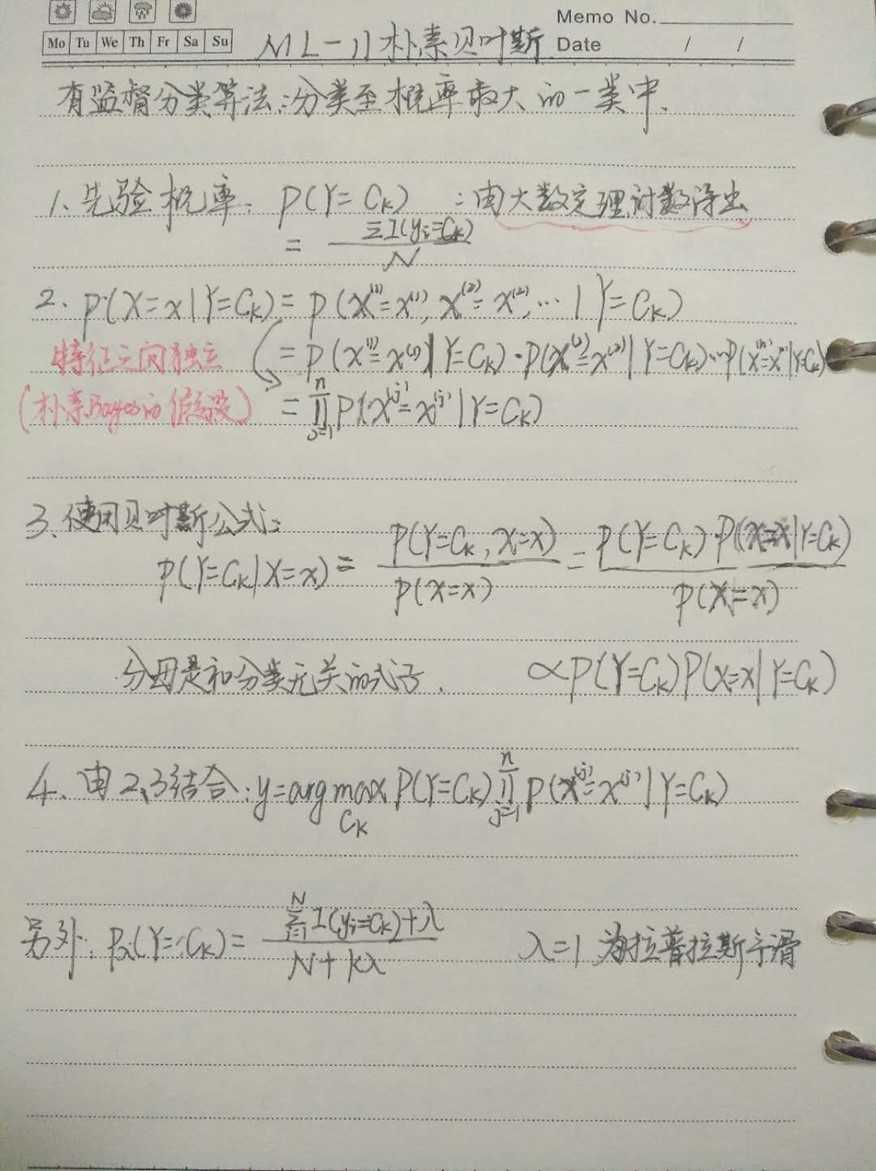 Memo No.
Mo Tu We Th Fr Sa Su
ML-11 朴素贝叶斯
Date / /
有监督分类算法:分类至概率最大的一类中.
1. 先验概率: P(Y=Ck) : 由大数定理计数得出
= ΣI(yi=Ck) / N
2. P(X=x|Y=Ck) = P(X⁽¹⁾=x⁽¹⁾, X⁽²⁾=x⁽²⁾, … | Y=Ck)
特征之间独立
= P(X⁽¹⁾=x⁽¹⁾|Y=Ck)·P(X⁽²⁾=x⁽²⁾|Y=Ck)…P(X⁽ⁿ⁾=xⁿ|Y=Ck)
(朴素Bayes的假设)
= ∏ⁿj=1 P(X⁽ʲ⁾=x⁽ʲ⁾|Y=Ck)
3. 使用贝叶斯公式:
P(Y=Ck|X=x) = P(Y=Ck, X=x) / P(X=x) = P(Y=Ck)·P(X=x|Y=Ck) / P(X=x)
分母是和分类无关的式子. ∝P(Y=Ck)P(X=x|Y=Ck)
4. 由2,3结合: y=arg max Ck P(Y=Ck) ∏ⁿj=1 P(X⁽ʲ⁾=x⁽ʲ⁾|Y=Ck)
另外: Pλ(Y=Ck) = (ΣᴺI(yi=Ck)+λ) / (N+Kλ) λ=1 为拉普拉斯平滑